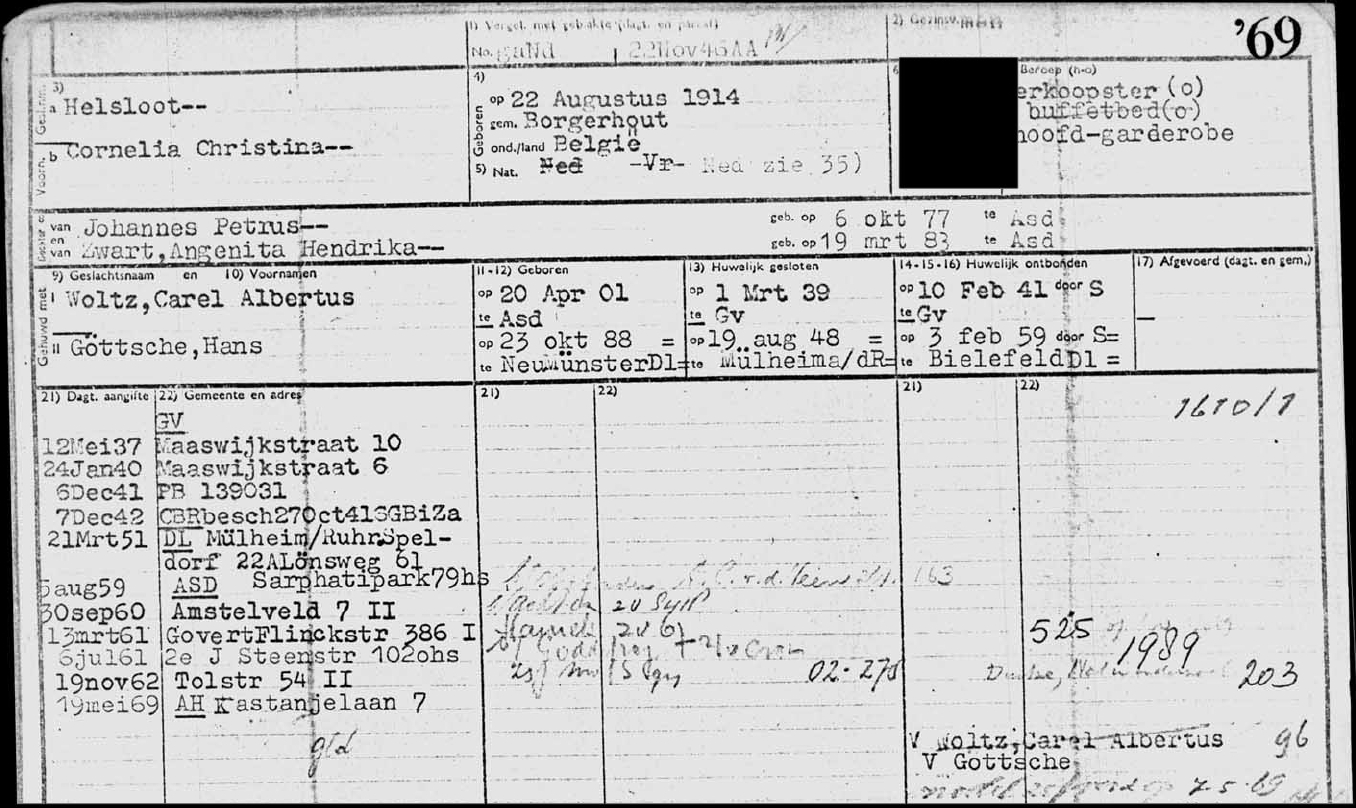 1) Verget. met geb.akte (dagt. en plaats)
2) Gezinsv. man
'69
No. guNd 22Nov46AA
3)
a Helsloot--
Geslnm.
b Cornelia Christina--
Voorn.
4)
Geboren
op 22 Augustus 1914
gem. Borgerhout
ond./land België
5) Nat. Ned -Vr- Ned zie 35)
6
Beroep (h-o)
erkoopster (o)
buffetbed(o)
hoofd-garderobe
van Johannes Petrus-- geb. op 6 okt 77 te Asd
en
van Zwart,Angenita Hendrika-- geb. op 19 mrt 83 te Asd
Gehuwd met
9) Geslachtsnaam en 10) Voornamen
I Woltz,Carel Albertus
II Göttsche,Hans
11-12) Geboren
op 20 Apr 01
te Asd
op 23 okt 88 =
te NeuMünsterDl=
13) Huwelijk gesloten
op 1 Mrt 39
te Gv
op 19 aug 48 =
te Mülheima/dR=
14-15-16) Huwelijk ontbonden
op 10 Feb 41 door S
te Gv
op 3 feb 59 door S=
te BielefeldDl =
17) Afgevoerd (dagt. en gem.)
—
21) Dagt. aangifte 22) Gemeente en adres 21) 22) 21) 22)
1610/1
GV
12Mei37 Maaswijkstraat 10
24Jan40 Maaswijkstraat 6
6Dec41 PB 139031
7Dec42 CBRbesch27Oct41SGBiZa
21Mrt51 DL Mülheim/Ruhr.Spel-
dorf 22ALönsweg 61
5aug59 ASD Sarphatipark79hs
163
30sep60 Amstelveld 7 II
13mrt61 GovertFlinckstr 386 I
525
6jul61 2e J Steenstr 102ohs
1989
19nov62 Tolstr 54 II
02-27
203
19mei69 AH Kastanjelaan 7
V Woltz,Carel Albertus 96
V Göttsche
7-5-69